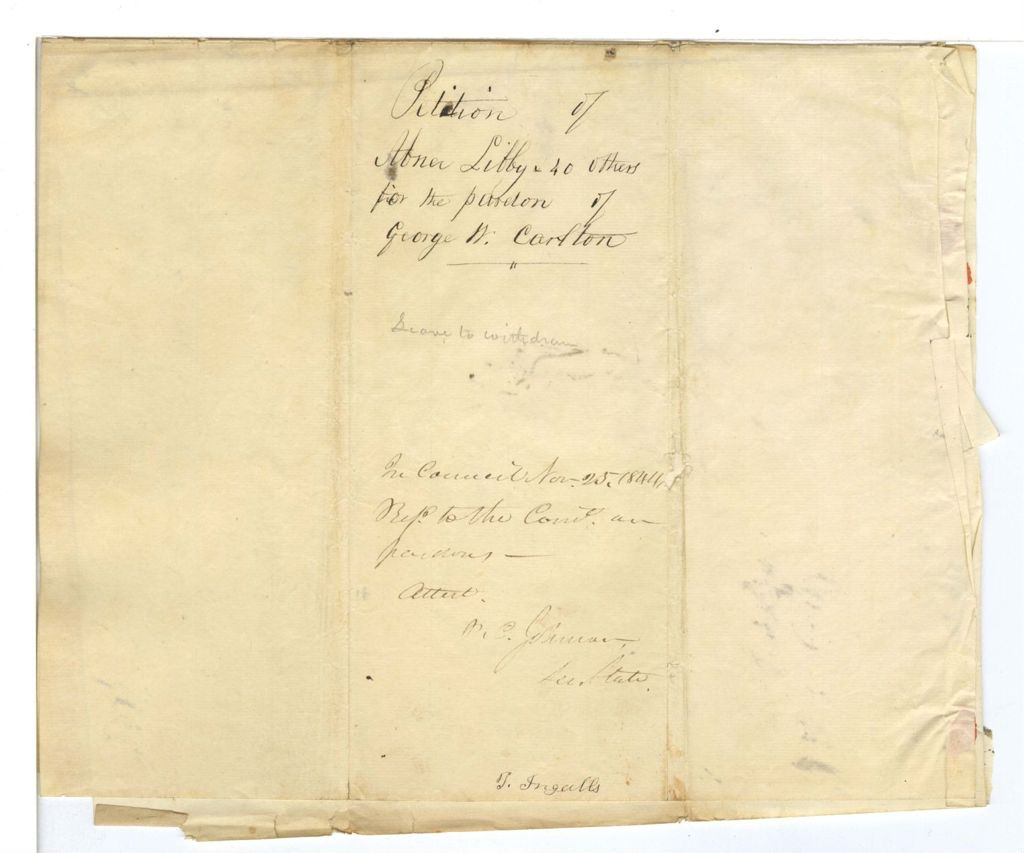 Petition of
Abner Libby & 40 others
for the pardon of
George W. Carlton
"
Leave to withdraw
In Council Nov. 25, 1844.
Refd. to the Comtt. on
pardons —
Attest.
P. C. Johnson,
Sec. State.
T. Ingalls